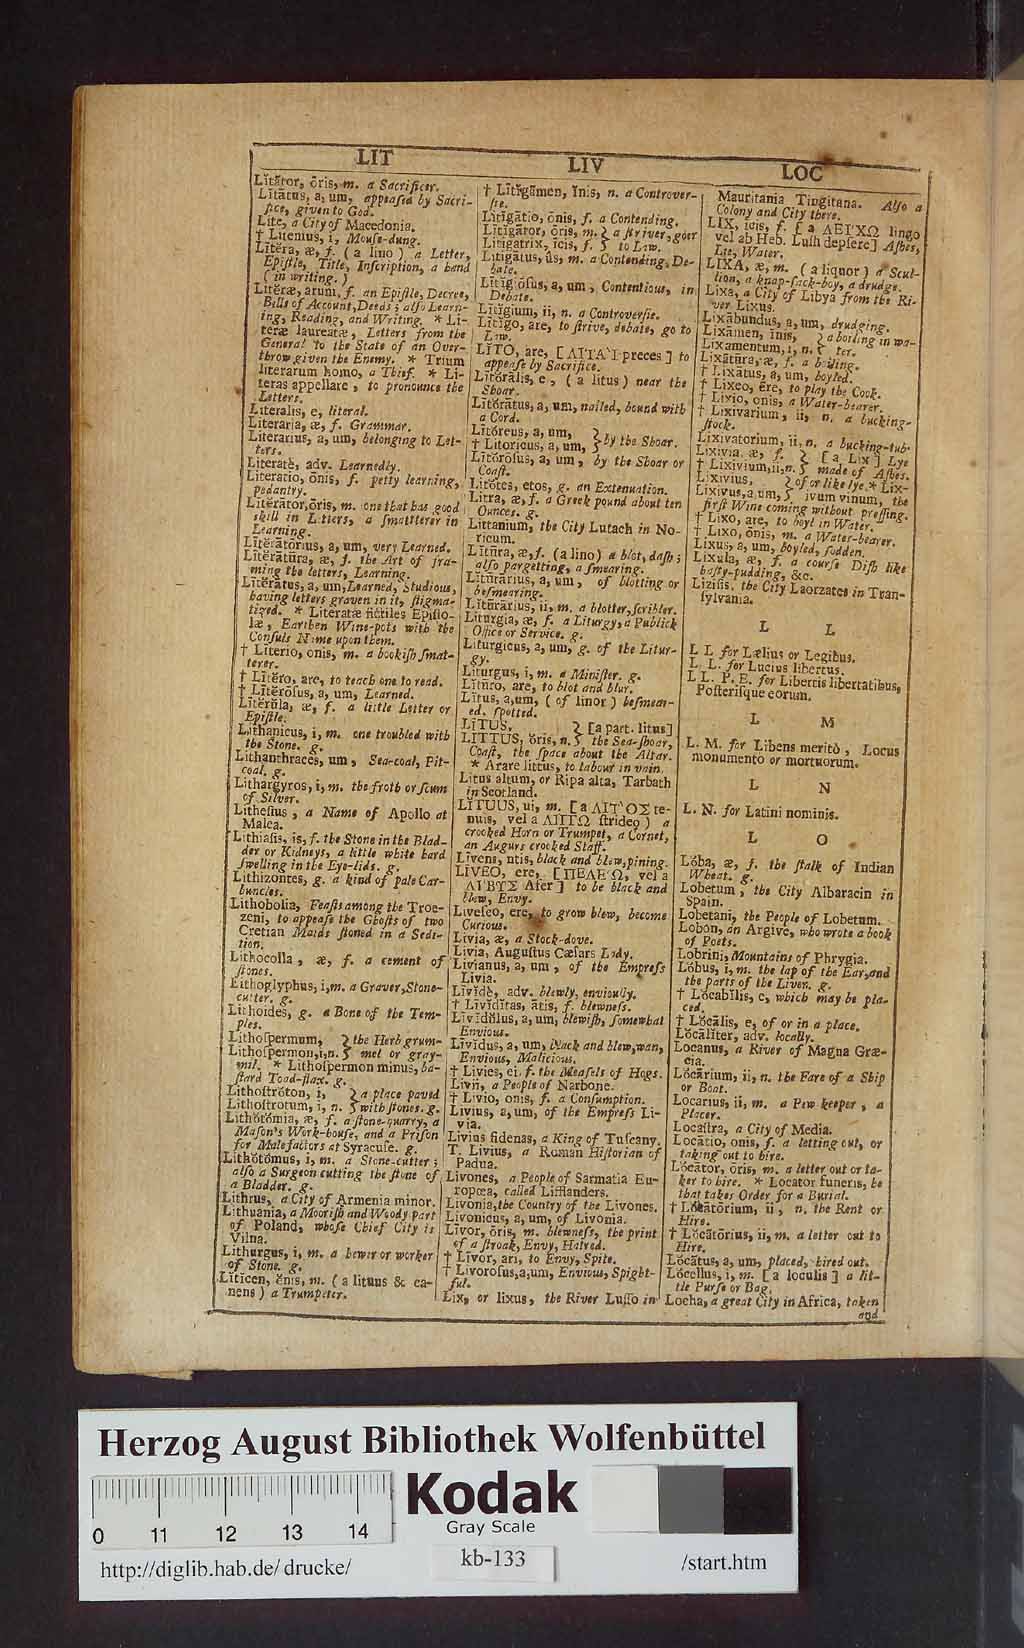 LIT
LIV
LOC
Lĭtātor, ōris, m. a Sacrificer.
Lĭtātus, a, um, appeaſed by Sacri-
fice, given to God.
Lite, a City of Macedonia.
† Litenius, i, Mouſe-dung.
Lĭtĕra, æ, f. ( a lino ) a Letter,
Epiſtle, Title, Inſcription, a hand
( in writing. )
Litĕræ, arum, f. an Epiſtle, Decree,
Bills of Account, Deeds ; alſo Learn-
ing, Reading, and Writing. * Li-
teræ laureatæ, Letters from the
General to the State of an Over-
throw given the Enemy. * Trium
literarum homo, a Thief. * Li-
teras appellare, to pronounce the
Letters.
Literalis, e, literal.
Literaria, æ, f. Grammar.
Literarius, a, um, belonging to Let-
ters.
Literatè, adv. Learnedly.
Literatio, ōnis, f. petty learning,
pedantry.
Litĕrātor, ōris, m. one that has good
skill in Letters, a ſmattterer in
Learning.
Lĭtĕrātōrius, a, um, very Learned.
Lĭtĕrātūra, æ, f. the Art of fra-
ming the letters, Learning.
Lĭtĕrātus, a, um, Learned, Studious,
having letters graven in it, ſtigma-
tized. * Literatæ fictiles Epiſto-
læ, Earthen Wine-pots with the
Conſuls Name upon them.
† Literio, onis, m. a bookiſh ſmat-
terer.
† Lĭtĕro, are, to teach one to read.
† Lĭtĕrōſus, a, um, Learned.
Lĭtĕrŭla, æ, f. a little Letter or
Epiſtle.
Lithanicus, i, m. one troubled with
the Stone. g.
Lithanthraces, um, Sea-coal, Pit-
coal, g.
Lithargyros, i, m. the froth or ſcum
of Silver.
Litheſius, a Name of Apollo at
Malea.
Lithiaſis, is, f. the Stone in the Blad-
der or Kidneys, a little white hard
ſwelling in the Eye-lids. g.
Lithizontes, g. a kind of pale Car-
buncles.
Lithobolia, Feaſts among the Troe-
zeni, to appeaſe the Ghoſts of two
Cretian Maids ſtoned in a Sedi-
tion.
Lithocolla, æ, f. a cement of
ſtones.
Lithoglyphus, i, m. a Graver, Stone-
cutter. g.
Lithoides, g. a Bone of the Tem-
ples.
Lithoſpermum, } the Herb grum-
Lithoſpermon, i, n. } mel or gray-
mil. * Lithoſpermon minus, ba-
ſtard Toad-flax. g.
Lithoſtrōton, i, } a place paved
Lithoſtrotum, i, n. } with ſtones. g.
Lithŏtŏmia, æ, f. a ſtone-quarry, a
Maſon's Work-houſe, and a Priſon
for Malefactors at Syracuſe. g.
Lithŏtŏmus, i, m. a Stone-cutter ;
alſo a Surgeon cutting the ſtone of
a Bladder. g.
Lithrus, a City of Armenia minor.
Lithuania, a Mooriſh and Woody part
of Poland, whoſe Chief City is
Vilna.
Lithurgus, i, m. a hewer or worker
of Stone. g.
Lĭtĭcen, ĕnis, m. ( a lituus & ca-
nens ) a Trumpeter.
† Lĭtĭgāmen, ĭnis, n. a Controver-
ſie.
Lĭtigātio, ōnis, f. a Contending.
Lĭtĭgātor, ōris, m. } a ſtriver, goer
Litigatrix, icis, f. } to Law.
Litigātus, ûs, m. a Contending, De-
bate.
Lĭtĭgiōſus, a, um, Contentious, in
Debate.
Lĭtĭgium, ii, n. a Controverſie.
Lĭtĭgo, are, to ſtrive, debate, go to
Law.
LĬTO, are, [ ΛΙΤΑΊ preces ] to
appeaſe by Sacrifice.
Lĭtŏrālis, e, ( a litus ) near the
Shoar.
Litŏrātus, a, um, nailed, bound with
a Cord.
Lĭtŏreus, a, um, } by the Shoar.
† Litoricus, a, um, }
Lĭtŏrōſus, a, um, by the Shoar or
Coaſt.
Litŏtes, etos, g. an Extenuation.
Litra, æ, f. a Greek pound about ten
Ounces. g.
Littanium, the City Lutach in No-
ricum.
Litūra, æ, f. (a lino) a blot, daſh ;
alſo pargetting, a ſmearing.
Litūrārius, a, um, of blotting or
beſmearing.
Litūrārius, ii, m. a blotter, ſcribler.
Liturgia, æ, f. a Liturgy, a Publick
Office or Service. g.
Liturgicus, a, um, g. of the Litur-
gy.
Liturgus, i, m. a Miniſter. g.
Litūro, are, to blot and blur.
Lĭtus, a, um, ( of linor ) beſmear-
ed. ſpotted.
LĪTUS, } [a part. litus]
LITTUS, ŏris, n. } the Sea-ſhoar,
Coaſt, the ſpace about the Altar.
* Arare littus, to labour in vain.
Litus altum, or Ripa alta, Tarbath
in Scotland.
LĬTUUS, ui, m. [ a ΛΙΤῸΣ te-
nuis, vel a ΛΙΓΓΩ ſtrideo ) a
crooked Horn or Trumpet, a Cornet,
an Augurs crooked Staff.
Līvens, ntis, black and blew, pining.
LĪVEO, ere, [ ΠΕΛΕΎΩ, vel a
ΛΙΒΥΣ Afer ] to be black and
blew, Envy.
Liveſco, ere, to grow blew, become
Curious.
Livia, æ, a Stock-dove.
Livia, Auguſtus Cæſars Lady.
Livianus, a, um, of the Empreſs
Livia.
Līvĭdè, adv. blewly, enviouſly.
† Līvĭdĭtas, ātis, f. blewneſs.
Līvĭdŭlus, a, um, blewiſh, ſomewhat
Envious.
Līvĭdus, a, um, black and blew, wan,
Envious, Malicious.
† Livies, ei. f. the Meaſels of Hogs.
Livii, a People of Narbone.
† Livio, onis, f. a Conſumption.
Livius, a, um, of the Empreſs Li-
via.
Livius fidenas, a King of Tuſcany.
T. Livius, a Roman Hiſtorian of
Padua.
Livones, a People of Sarmatia Eu-
ropœa, called Lifflanders.
Livonia, the Country of the Livones.
Livonicus, a, um, of Livonia.
Livor, ōris, m. blewneſs, the print
of a ſtroak, Envy, Hatred.
† Livor, ari, to Envy, Spite.
† Livoroſus, a, um, Envious, Spight-
ful.
Lix, or lixus, the River Luſſo in
Mauritania Tingitana. Alſo a
Colony and City there.
LIX, icis, f. [ a ΛΕΙΧΩ lingo
vel ab Heb. Luſh depſere] Aſhes,
Lie, Water.
LIXA, æ, m. ( a liquor ) a Scul-
lion, a knap-ſack-boy, a drudge.
Lixa, a City of Libya from the Ri-
ver Lixus.
Lixābundus, a, um, drudging.
Lixāmen, ĭnis, } a boiling in wa-
Lixamentum, i, n. } ter.
Lixātūra, æ, f. a boiling.
† Lixātus, a, um, boyled.
† Lixeo, ēre, to play the Cook.
† Lixio, onis, a Water-bearer.
† Lixivarium, ii, n. a bucking-
ſtock.
Lixivatorium, ii, n. a bucking-tub.
Lixivia, æ, f. } [ a Lix ] Lye
† Lixivium, ii, n. } made of Aſhes.
Lixivius, } of or like lye. * Lix-
Lixivus, a, um, } ivum vinum, the
firſt Wine coming without preſſing.
† Lixo, are, to boyl in Water.
† Lixo, ōnis, m. a Water-bearer.
Lixus, a, um, boyled, ſodden.
Lixula, æ, f. a courſe Diſh like
haſty-pudding, &c.
Liziſis, the City Laorzates in Tran-
ſylvania.
L L
L L for Lælius or Legibus.
L. L. for Lucius libertus.
L L. P. E. for Libertis libertatibus,
Poſteriſque eorum.
L M
L. M. for Libens meritò, Locus
monumento or mortuorum.
L N
L. N. for Latini nominis.
L O
Lóba, æ, f. the ſtalk of Indian
Wheat. g.
Lobetum, the City Albaracin in
Spain.
Lobetani, the People of Lobetum.
Lobon, an Argive, who wrote a book
of Poets.
Lobrini, Mountains of Phrygia.
Lŏbus, i, m. the lap of the Ear, and
the parts of the Liver. g.
† Lŏcabĭlis, e, which may be pla-
ced.
† Lŏcālis, e, of or in a place.
Lŏcālĭter, adv. locally.
Locanus, a River of Magna Græ-
cia.
Lŏcārium, ii, n. the Fare of a Ship
or Boat.
Locarius, ii, m. a Pew keeper, a
Placer.
Locaſtra, a City of Media.
Locātio, onis, f. a letting out, or
taking out to hire.
Lŏcātor, ōris, m. a letter out or ta-
ker to hire. * Locator funeris, he
that takes Order for a Burial.
† Lŏcātōrium, ii, n. the Rent or
Hire.
† Lŏcātōrius, ii, m. a letter out to
Hire.
Lŏcātus, a, um, placed, hired out.
Lŏcellus, i, m. [ a loculis ] a lit-
tle Purſe or Bag.
Locha, a great City in Africa, taken
and
Herzog August Bibliothek Wolfenbüttel
Kodak
Gray Scale
0 11 12 13 14
http://diglib.hab.de/ drucke/
kb-133
/start.htm